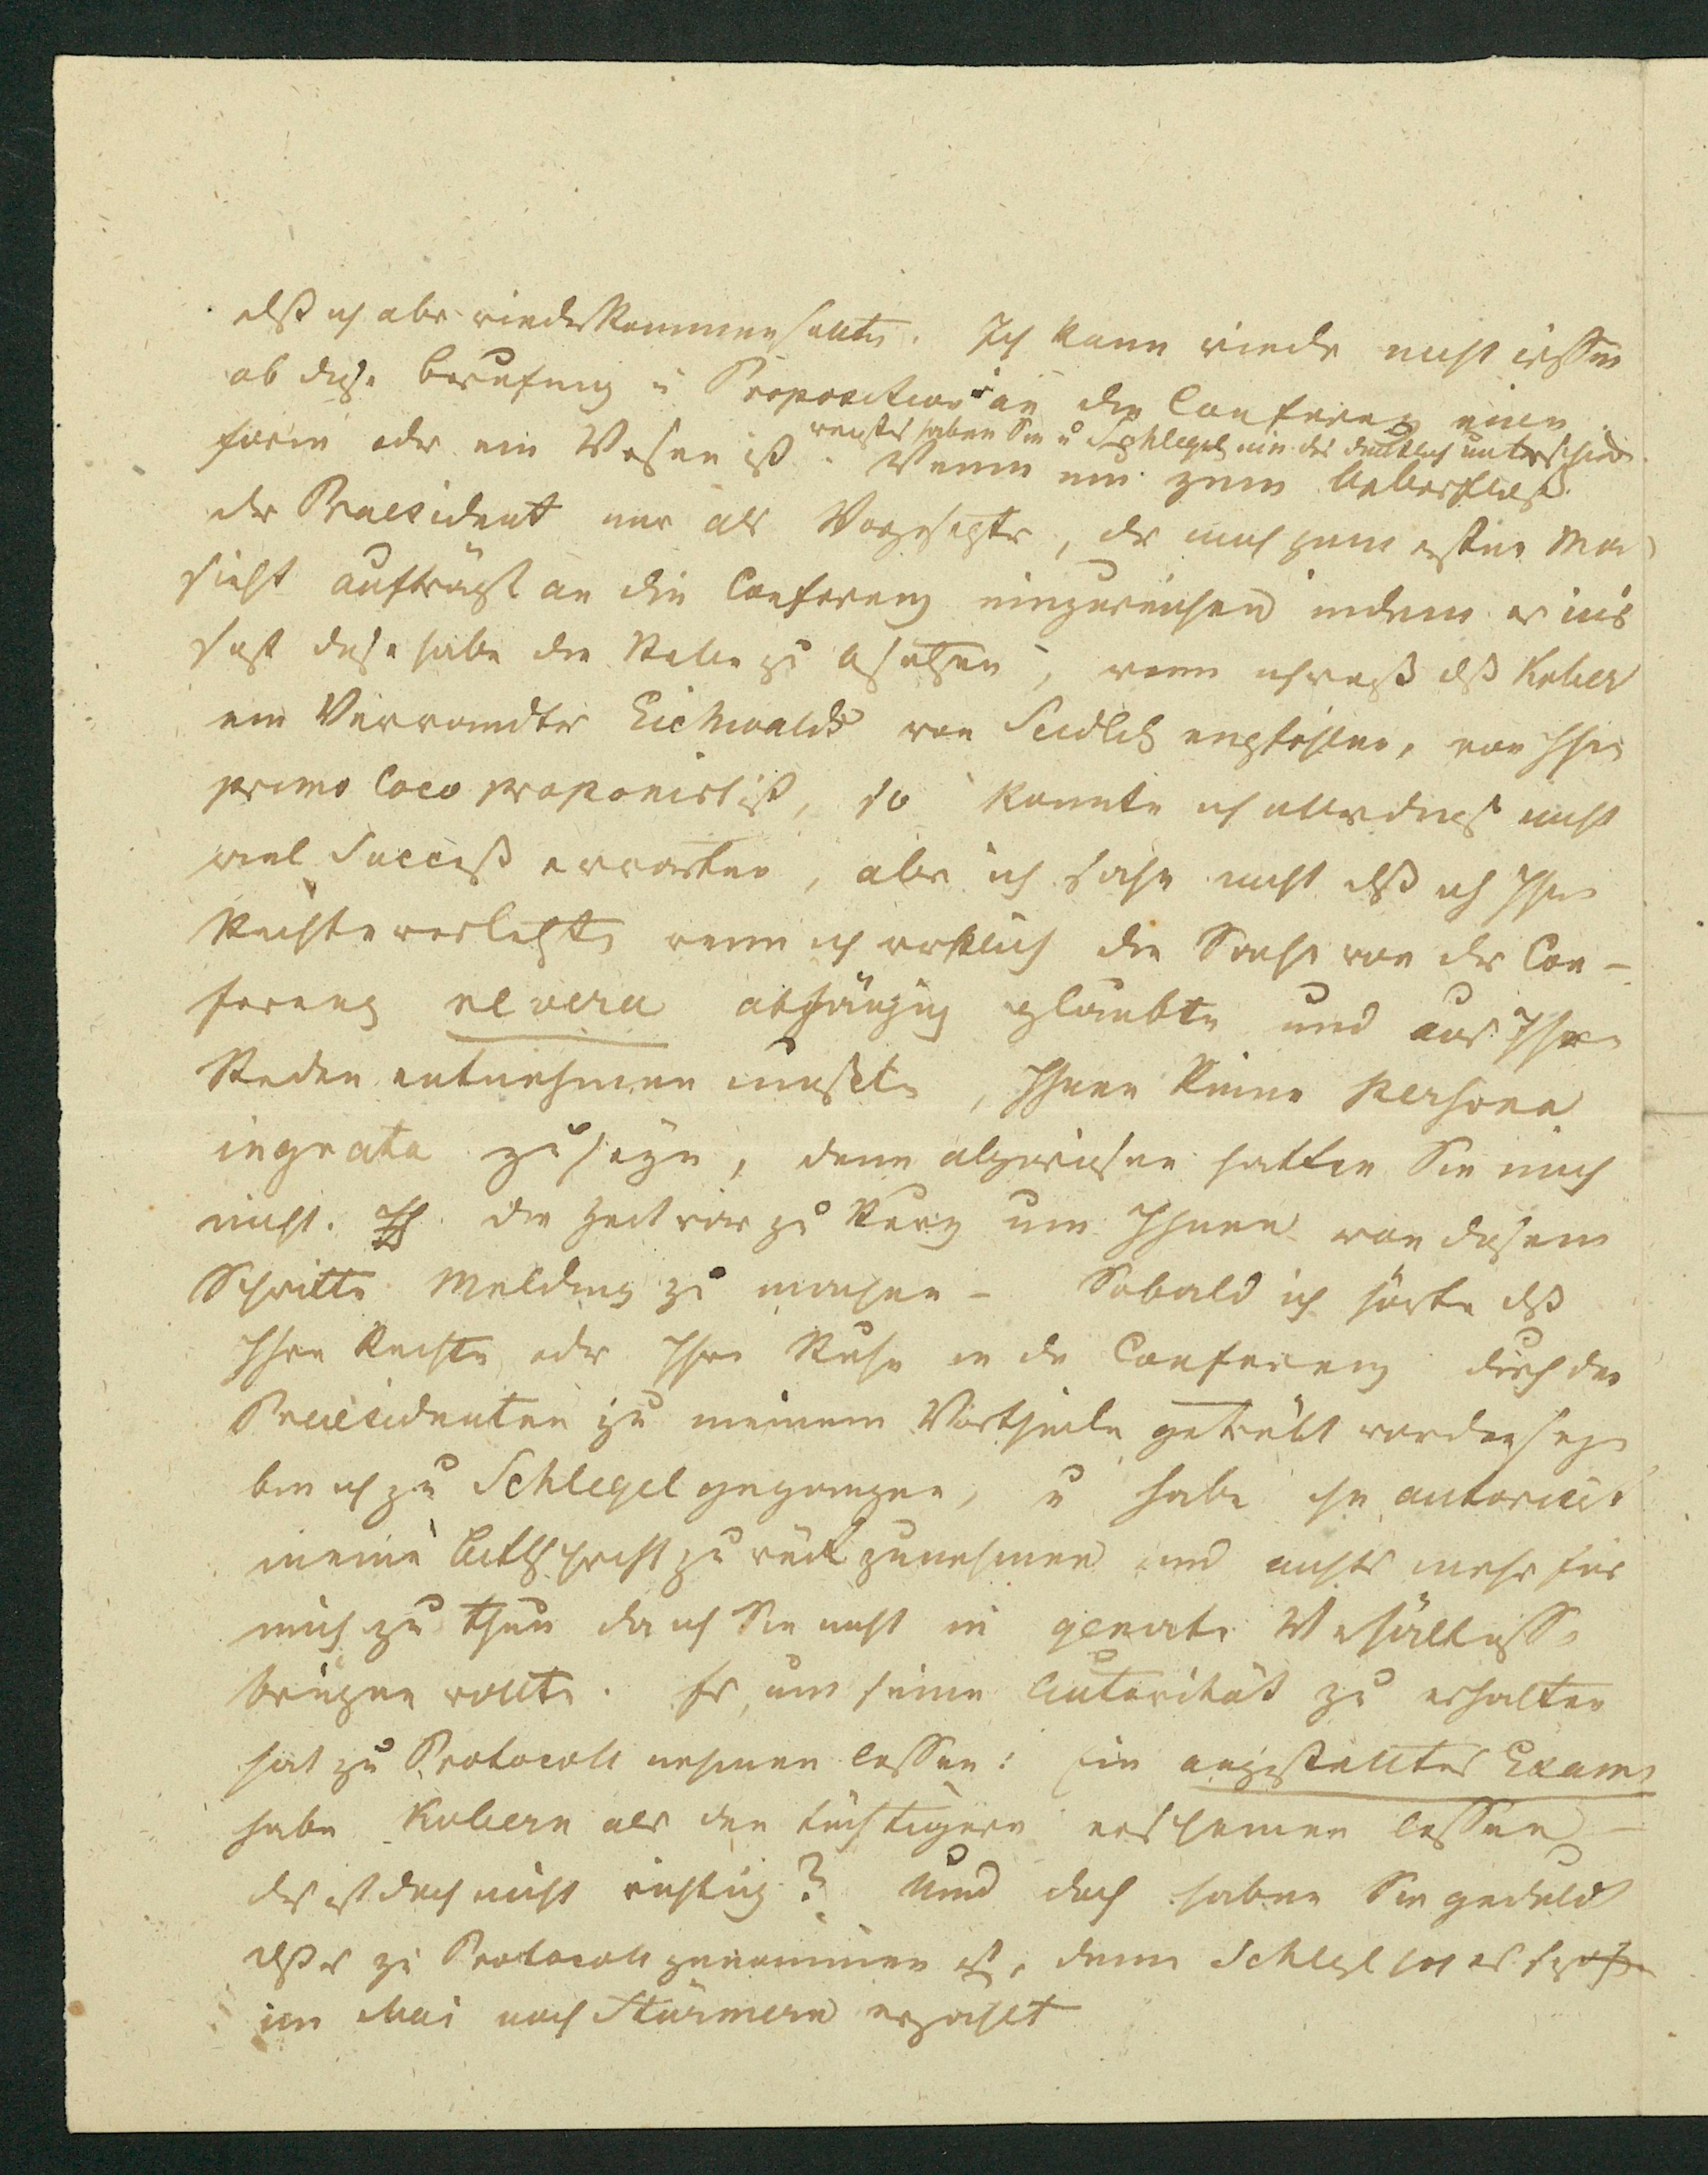 dß ich aber wiederkommen sollte. Ich kann wieder nicht wissen
ob diese Berufung u Proposition an die Conferenz eine
wenigstens haben Sie u Schlegel nie dies deutlich unterschieden
Form oder ein Wesen ist. Wenn nun zum Ueberfluß
der Praesident nur als Vorgesetzter, der mich zum ersten Mal
sieht aufträgt an die Conferenz einzureichen indem er mir
sagt diese habe die Stelle zu besetzen, wenn ich weiß dß Kober
ein Verwandter Eichwalds von Seidlitz empfohlen, von Ihnen
primo loco proponirt ist, so konnte ich allerdings nicht
viel Succeß erwarten, aber ich sahe nicht dß ich Ihre
Rechte verletzte wenn ich wirklich die Sache von der Con-
ferenz re vera abhängig glaubte und aus Ihren
Reden entnehmen mußte, Ihnen keine persona
ingrata zu seyn, denn abgewiesen hatten Sie mich
nicht. Die Zeit war zu kurz um Ihnen von diesem
Schritte Meldung zu machen – Sobald ich hörte dß
Ihre Rechte oder Ihre Ruhe in der Conferenz durch den
Praesidenten zu meinem Vortheile getrübt worden sey
bin ich zu Schlegel gegangen, u habe ihn autorisirt
meine Bittschrift zurückzunehmen und nichts mehr für
mich zu thun da ich Sie nicht in Verhältnisse
bringen wollte. Er, um seine Autorität zu erhalten
hat zu Protocoll nehmen lassen: Ein angestelltes Examen
habe Kobern als den tüchtigern erscheinen lassen –
das ist doch nicht richtig? Und doch haben Sie geduldet
dß es zu Protocoll genommen ist, denn Schlegel hat es
im Mai noch Stürmern erzählt